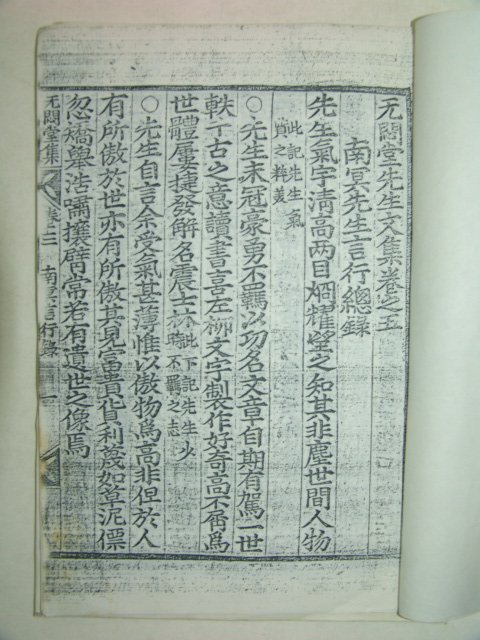 无悶堂先生文集卷之五
南冥先生言行總錄
先生氣宇淸高兩目炯耀望之知其非塵世間人物
此記先生氣
質之粹美
○先生未冠豪勇不羈以功名文章自期有駕一世
軼千古之意讀書喜左柳文字製作好奇高不屑爲
世體屢捷發解名震士林
此下記先生少
時不羈之志
○先生自言余受氣甚薄惟以傲物爲高非但於人
有所傲於世亦有所傲其見富貴貨利蔑如草泥僄
忽矯舉浩嘯攘臂常若有遺世之像焉
无悶堂集 卷之五 南冥言行錄 一